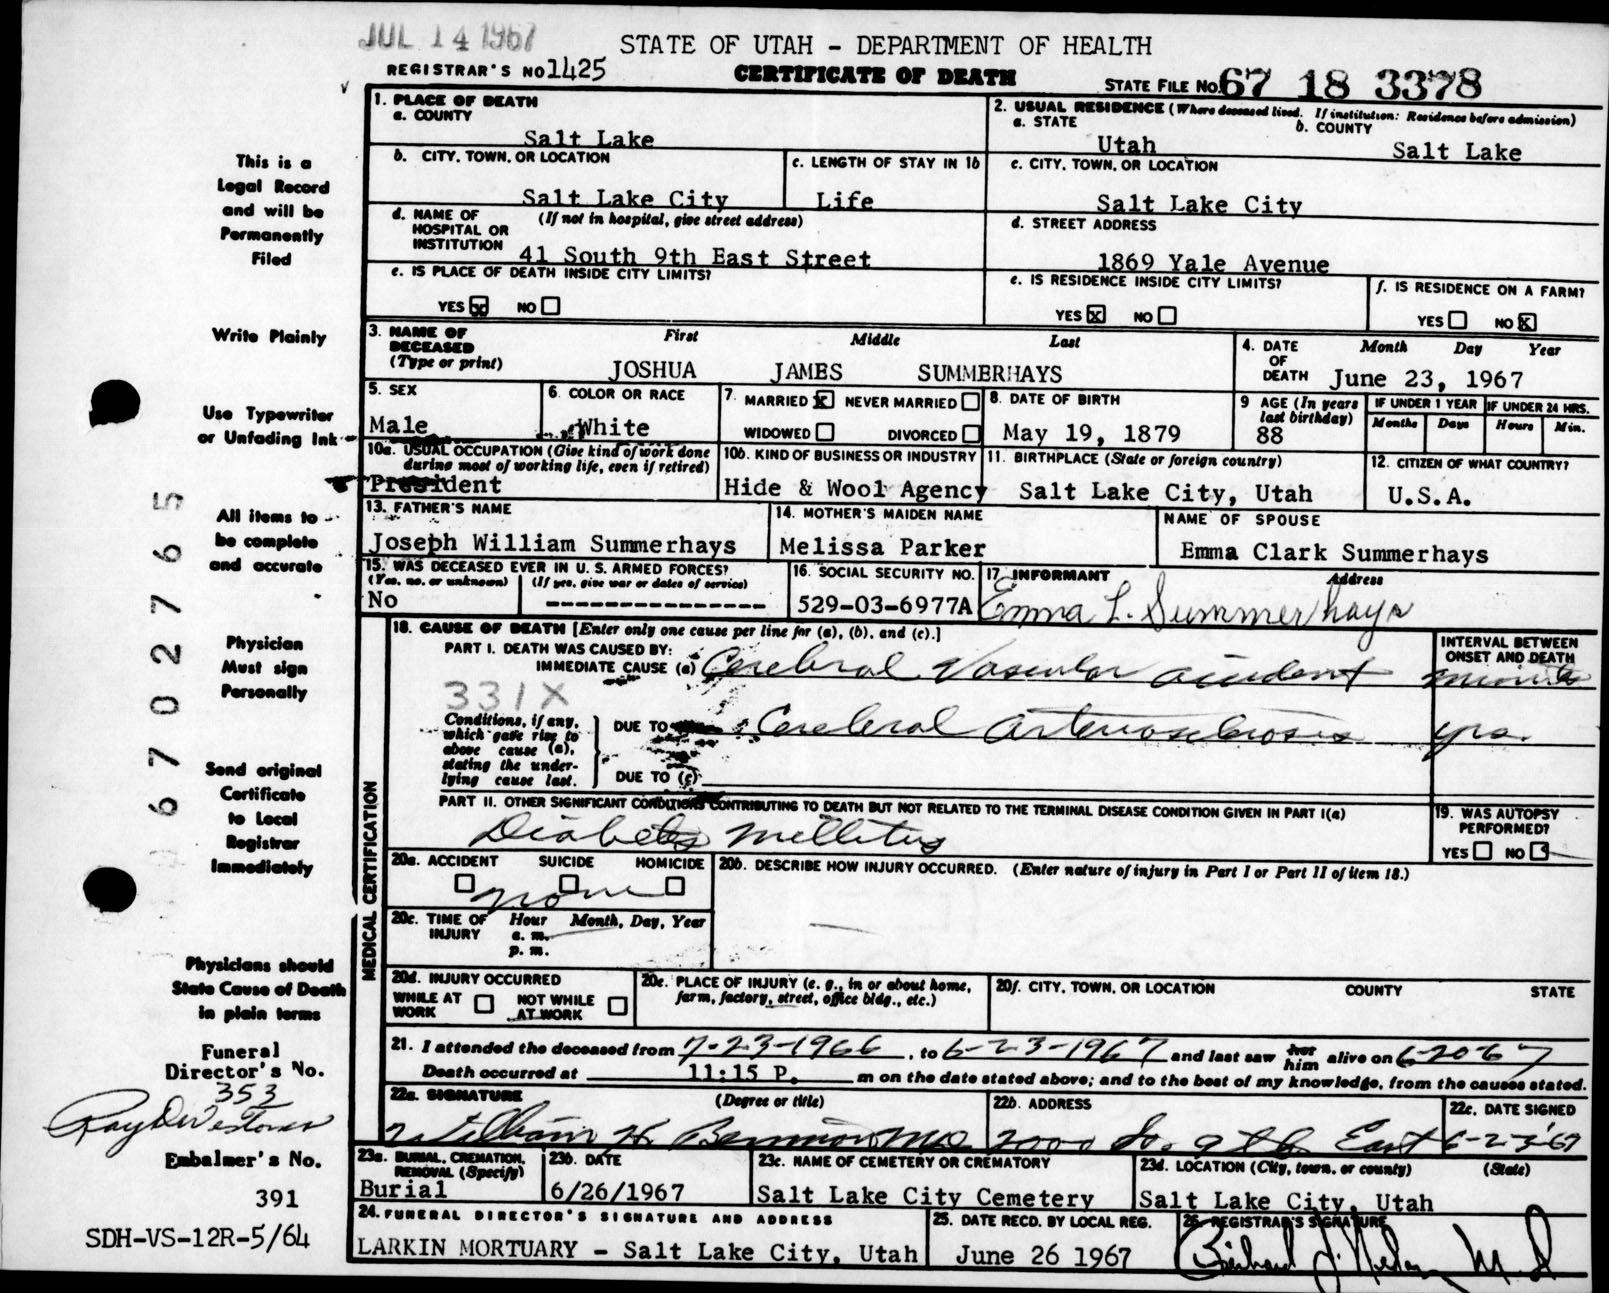 JUL 14 1967
STATE OF UTAH - DEPARTMENT OF HEALTH
REGISTRAR'S NO 1425
CERTIFICATE OF DEATH
STATE FILE NO. 67 18 3378
This is a
Legal Record
and will be
Permanently
Filed
Write Plainly
Use Typewriter
or Unfading Ink
All items to
be complete
and accurate
Physician
Must sign
Personally
Send original
Certificate
to Local
Registrar
Immediately
Physicians should
State Cause of Death
in plain terms
Funeral
Director's No.
353
Embalmer's No.
391
SDH-VS-12R-5/64
67027765
1. PLACE OF DEATH
a. COUNTY
Salt Lake
2. USUAL RESIDENCE (Where deceased lived. If institution: Residence before admission)
a. STATE b. COUNTY
Utah Salt Lake
b. CITY, TOWN, OR LOCATION
Salt Lake City
c. LENGTH OF STAY IN 1b
Life
c. CITY, TOWN, OR LOCATION
Salt Lake City
d. NAME OF HOSPITAL OR INSTITUTION (If not in hospital, give street address)
41 South 9th East Street
d. STREET ADDRESS
1869 Yale Avenue
e. IS PLACE OF DEATH INSIDE CITY LIMITS?
YES X NO
e. IS RESIDENCE INSIDE CITY LIMITS?
YES X NO
f. IS RESIDENCE ON A FARM?
YES NO X
3. NAME OF DECEASED (Type or print)
First Middle Last
JOSHUA JAMES SUMMERHAYS
4. DATE OF DEATH Month Day Year
June 23, 1967
5. SEX
Male
6. COLOR OR RACE
White
7. MARRIED X NEVER MARRIED
WIDOWED DIVORCED
8. DATE OF BIRTH
May 19, 1879
9 AGE (In years last birthday)
88
IF UNDER 1 YEAR IF UNDER 24 HRS.
Months Days Hours Min.
10a. USUAL OCCUPATION (Give kind of work done during most of working life, even if retired)
President
10b. KIND OF BUSINESS OR INDUSTRY
Hide & Wool Agency
11. BIRTHPLACE (State or foreign country)
Salt Lake City, Utah
12. CITIZEN OF WHAT COUNTRY?
U.S.A.
13. FATHER'S NAME
Joseph William Summerhays
14. MOTHER'S MAIDEN NAME
Melissa Parker
NAME OF SPOUSE
Emma Clark Summerhays
15. WAS DECEASED EVER IN U.S. ARMED FORCES?
(Yes, no, or unknown) (If yes, give war or dates of service)
No ---------------
16. SOCIAL SECURITY NO.
529-03-6977A
17 INFORMANT Address
Emma L. Summerhays
MEDICAL CERTIFICATION
18. CAUSE OF DEATH [Enter only one cause per line for (a), (b), and (c).]
PART I. DEATH WAS CAUSED BY:
IMMEDIATE CAUSE (a) Cerebral Vascular accident
INTERVAL BETWEEN ONSET AND DEATH
minutes
331X
Conditions, if any, which gave rise to above cause (a), stating the under-lying cause last.
DUE TO Cerebral arteriosclerosis yrs.
DUE TO (c)
PART II. OTHER SIGNIFICANT CONDITIONS CONTRIBUTING TO DEATH BUT NOT RELATED TO THE TERMINAL DISEASE CONDITION GIVEN IN PART I(a)
Diabetes mellitus
19. WAS AUTOPSY PERFORMED?
YES NO
20a. ACCIDENT SUICIDE HOMICIDE
none
20b. DESCRIBE HOW INJURY OCCURRED. (Enter nature of injury in Part I or Part II of item 18.)
20c. TIME OF INJURY Hour Month, Day, Year
a. m.
p. m.
20d. INJURY OCCURRED
WHILE AT WORK NOT WHILE AT WORK
20e. PLACE OF INJURY (e. g., in or about home, farm, factory, street, office bldg., etc.)
20f. CITY, TOWN, OR LOCATION COUNTY STATE
21. I attended the deceased from 7-23-1966, to 6-23-1967 and last saw her him alive on 6-20-67
Death occurred at 11:15 P. m on the date stated above; and to the best of my knowledge, from the causes stated.
22a. SIGNATURE (Degree or title)
William H. Bennion MD
22b. ADDRESS
2000 So. 9th East
22c. DATE SIGNED
6-23-67
23a. BURIAL, CREMATION, REMOVAL (Specify)
Burial
23b. DATE
6/26/1967
23c. NAME OF CEMETERY OR CREMATORY
Salt Lake City Cemetery
23d. LOCATION (City, town, or county) (State)
Salt Lake City, Utah
24. FUNERAL DIRECTOR'S SIGNATURE AND ADDRESS
LARKIN MORTUARY - Salt Lake City, Utah
25. DATE RECD. BY LOCAL REG.
June 26 1967
26. REGISTRAR'S SIGNATURE
M.D